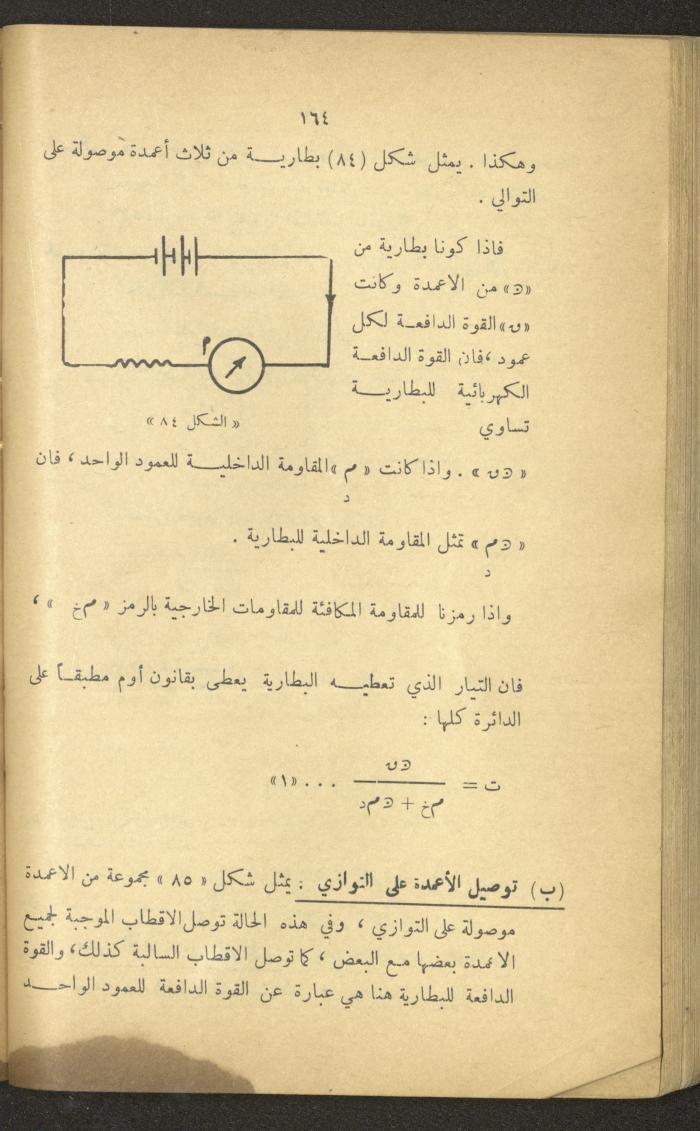 ١٦٤
وهكذا . يمثل شكل (٨٤) بطاريـــة من ثلاث أعمدة موصولة على
التوالي .
فاذا كونا بطارية من
«ﮭ» من الاعمدة وكانت
«ق» القوة الدافعـة لكل
عمود ، فان القوة الدافعـة
الكهربائية للبطاريـــة
تساوي
م
« الشكل ٨٤ »
« ﮭق » . واذا كانت « م » المقاومة الداخليـــة للعمود الواحد ، فان
د
« ﮭم » تمثل المقاومة الداخلية للبطارية .
د
واذا رمزنا للمقاومة المكافئة للمقاومات الخارجية بالرمز « مخ » ،
فان التيار الذي تعطيـــه البطارية يعطى بقانون أوم مطبقـاً على
الدائرة كلها :
ﮭق
ت = ــــــــ . . . «١»
مخ + ﮭمد
(ب) توصيل الأعمدة على التوازي : يمثل شكل « ٨٥ » مجموعة من الاعمدة
موصولة على التوازي ، وفي هذه الحالة توصل الاقطاب الموجبة لجميع
الاعمدة بعضها مـع البعض ، كما توصل الاقطاب السالبة كذلك، والقوة
الدافعة للبطارية هنا هي عبارة عن القوة الدافعة للعمود الواحـــد